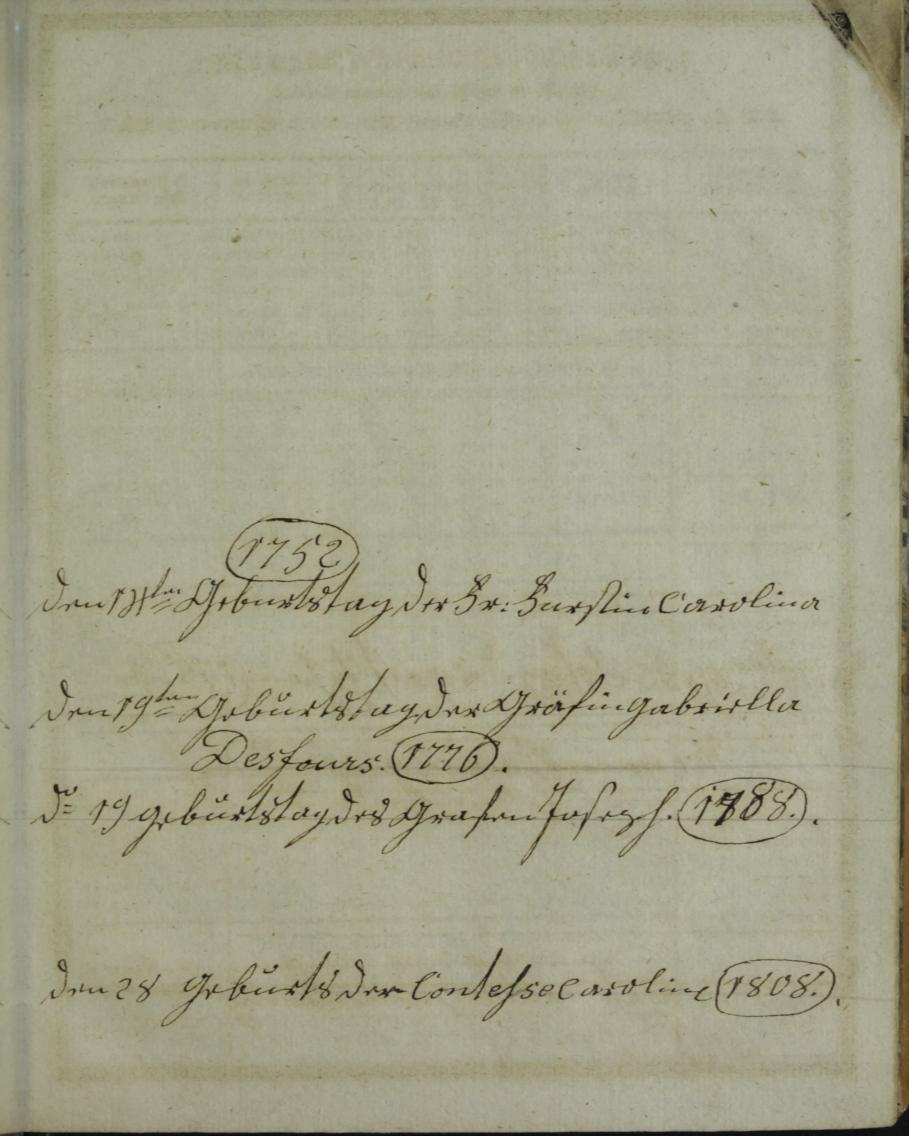 1752
den 14ten Geburtstag der Fr: Furstin Carolina
den 19ten Geburtstag der Gräfin Gabriella
Desfours. 1776.
do 19 geburtstag des Grafen Joseph. 1788.
den 28 Geburts der Contesse Caroline 1808.